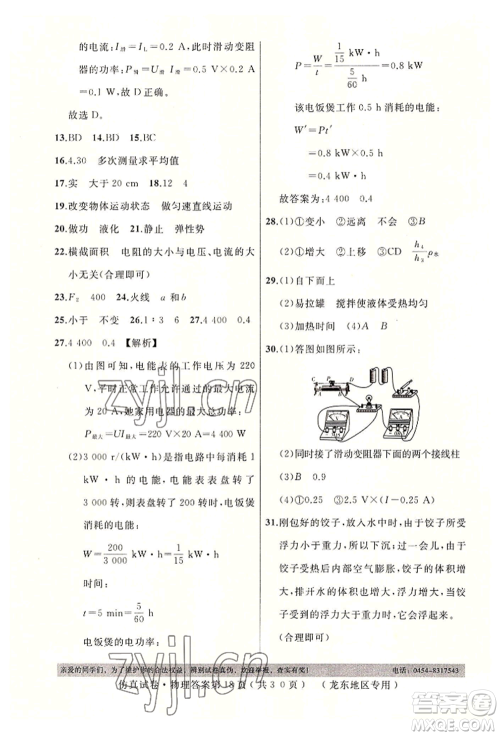 的电流:I滑=IL=0.2 A,此时滑动变阻
器的功率:P滑=U滑 I滑=0.5 V×0.2 A=
0.1 W,故 D 正确。
故选 D。
13.BD 14.BD 15.BC
16.4.30 多次测量求平均值
17.实 大于 20 cm 18.12 4
19.改变物体运动状态 做匀速直线运动
20.做功 液化 21.静止 弹性势
22.横截面积 电阻的大小与电压、电流的大
小无关(合理即可)
23.F₂ 400 24.火线 a 和 b
25.小于 不变 26.1∶3 6
27.4 400 0.4 【解析】
(1)由图可知,电能表的工作电压为 220
V,平时正常工作允许通过的最大电流为
20 A,她家用电器的最大总功率:
P最大=UI最大=220 V×20 A=4 400 W
(2)3 000 r/(kW·h)是指电路中每消耗 1
kW·h 的电能,电能表表盘转了3 000
转,电能表表盘转了 200 转,电饭煲
消耗的电能:
W=200/3 000 kW·h=1/15 kW·h
时间:
t=5 min=5/60 h
电饭煲的功率:
P=W/t=(1/15 kW·h)/(5/60 h)=0.8 kW
该电饭煲工作 0.5 h 消耗的电能:
W′=Pt′
=0.8 kW×0.5 h
=0.4 kW·h
故答案为:4 400 0.4
28.(1)变小 ②远离 不会 (2)D
(2)①增大 ②上移 ③CD h₄/h₃ ρ水
29.(1)自下而上
(2)易拉罐 搅拌使液体受热均匀
(3)加快 停止 (4)A
30.(1)答图如图所示:
C P
(2)同时接了滑动变阻器下面的两个接线柱
(3)B 0.9
(4)①0.25 ②2.5 V×(I-0.25 A)
31.刚包好的饺子,放入水中时,由于饺子所受
浮力小于重力,所以下沉;过一段时间,饺子
受热后内部空气膨胀,饺子的体积增
大,排开水的体积增大,所受浮力增
大,当浮力大于重力时,饺子上浮。
(合理即可)
亲爱的同学们,为了维护你的合法权益,辨别试卷真伪,欢迎举报,查实有奖! 电话:0454-8317543
仿真试卷·物理答案第18页(共30页) (龙东地区专用)
zyjl.cn
zyjl.cn